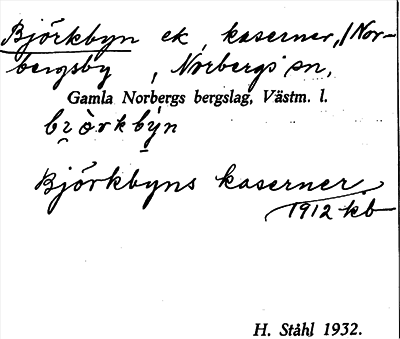 Björkbyn ek, kaserner, /Nor-
bergsby, Norbergs sn,
Gamla Norbergs bergslag, Västm. l.
Björkbyns kaserner.
1912 kb
H. Ståhl 1932.